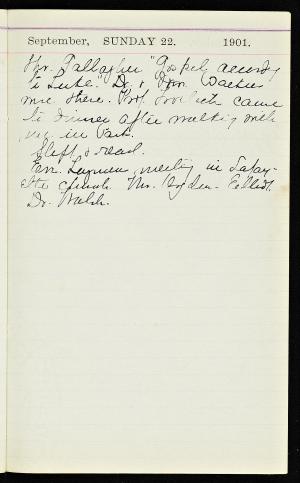 September, SUNDAY 22. 1901.
Mr. Gallagher "Gospel accordg
to Luke." Dr. & Mrs.
were there. Prof. came
to dinner after walking with
me in Park.
Slept & read.
Eve. Laymen meeting in Lafay-
ette church. Mr. Ogden - Elliot.
Dr. Walsh.